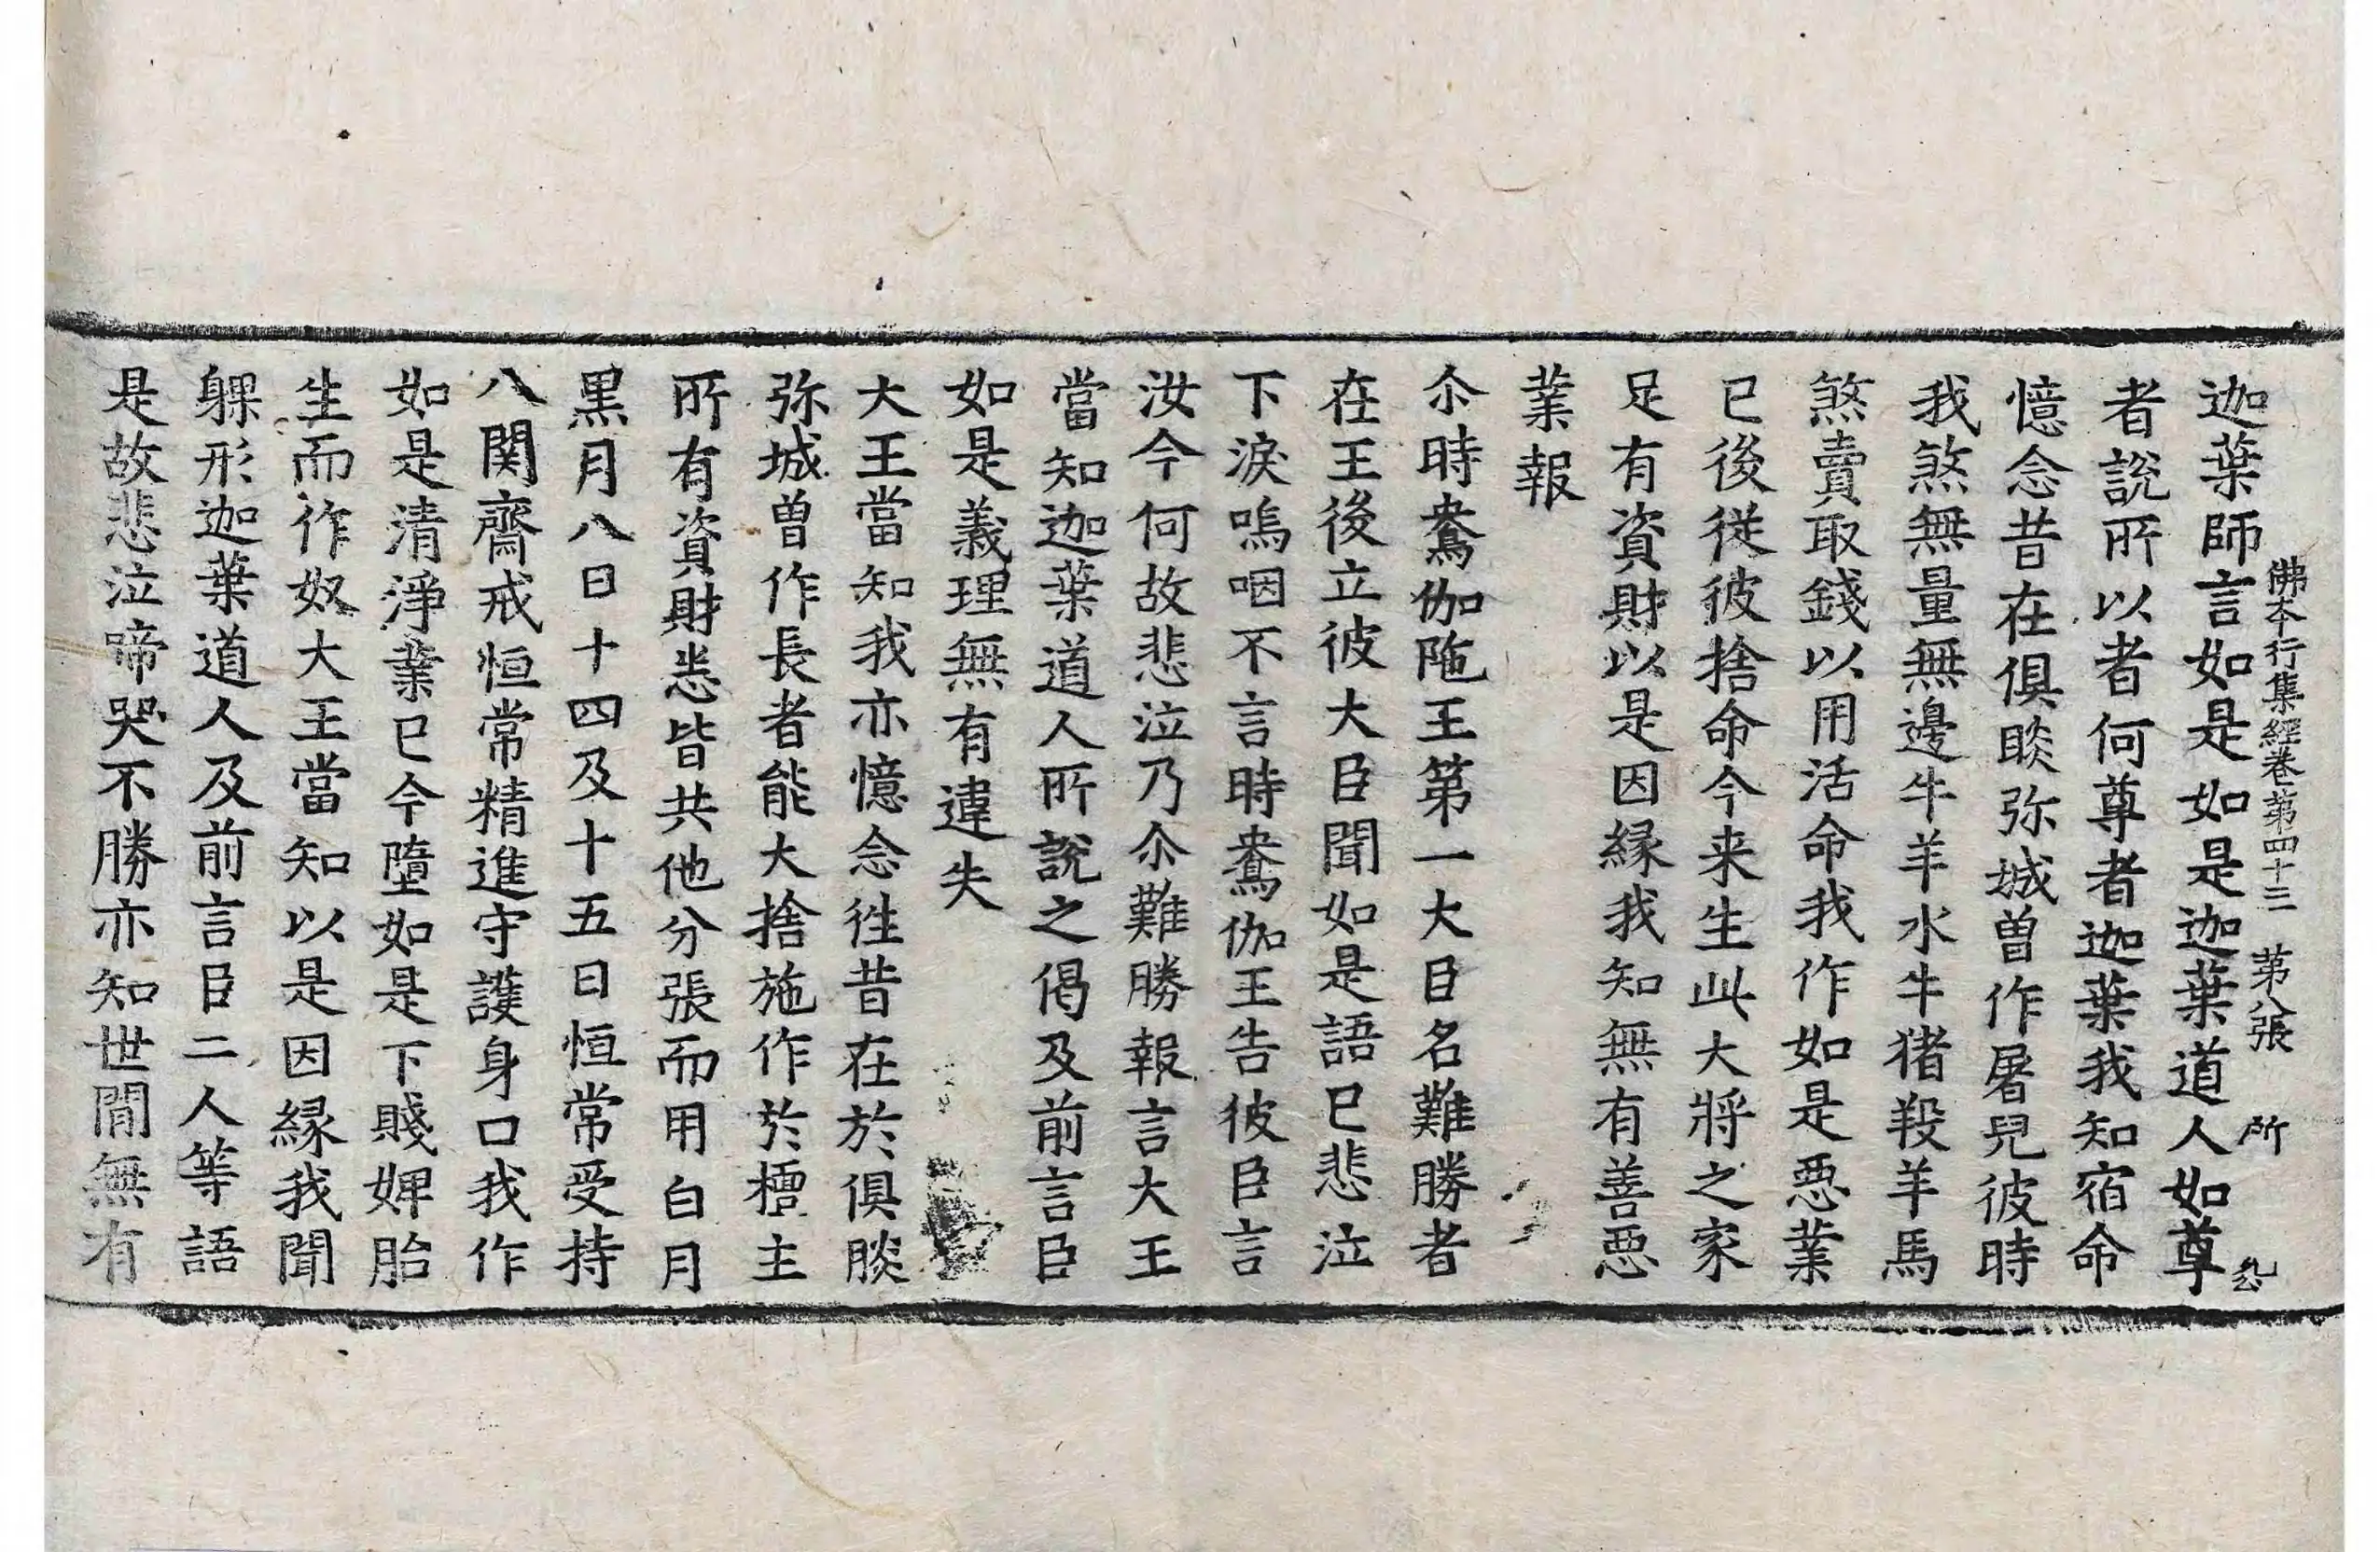 佛本行集經卷第四十三 第八張 所
迦葉師言如是如是迦葉道人如尊
者說所以者何尊者迦葉我知宿命
憶念昔在俱睒弥城曽作屠兒彼時
我煞無量無邊牛羊水牛猪羖羊馬
煞賣取錢以用活命我作如是惡業
已後從彼捨命今来生此大將之家
足有資財以是因縁我知無有善惡
業報
尒時鴦伽陁王第一大臣名難勝者
在王後立彼大臣聞如是語已悲泣
下淚嗚咽不言時鴦伽王告彼臣言
汝今何故悲泣乃尒難勝報言大王
當知迦葉道人所說之偈及前言臣
如是義理無有違失
大王當知我亦憶念徃昔在於俱睒
弥城曽作長者能大捨施作於檀主
所有資財悉皆共他分張而用白月
黒月八日十四及十五日恒常受持
八関齋戒恒常精進守護身口我作
如是清淨業已今墮如是下賤婢胎
生而作奴大王當知以是因縁我聞
躶形迦葉道人及前言臣二人等語
是故悲泣啼哭不勝亦知世間無有